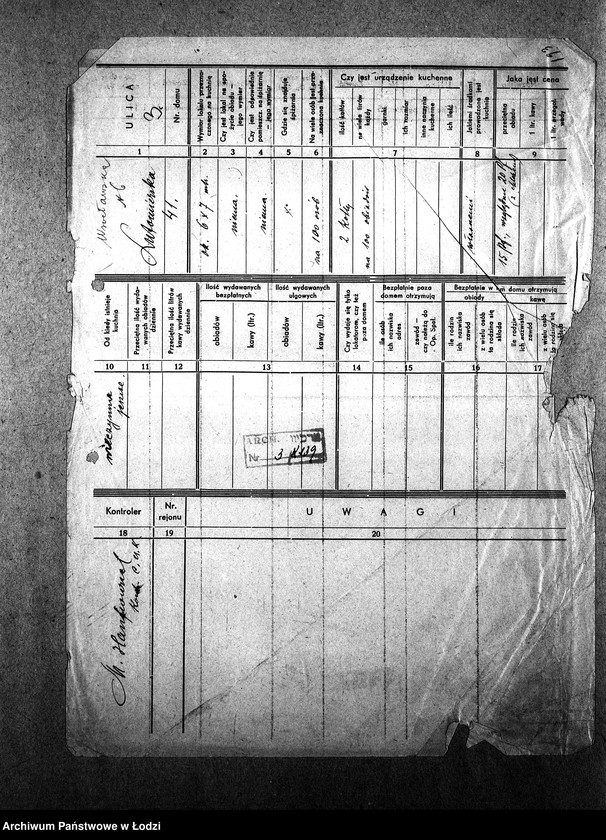 ULICA
3.
Nr. domu
Wymiar lokalu przeznaczonego na kuchnię
Czy jest lokal na spożycie obiadu — jego wymiar
Czy jest odpowiednie pomieszcz. na spiżarnię — jego wymiar
Gdzie się znajduje spiżarnia
Na wiele osób jest przeznaczona kuchnia
Czy jest urządzenie kuchenne
ilość kotłów
na wiele litrów każdy
garnki
ich rozmiar
inne naczynia kuchenne
ich ilość
Jakiemi środkami prowadzona jest kuchnia
Jaka jest cena
przeciętna obiadu
1 ltr. kawy
1 ltr. przegot. wody
1 2 3 4 5 6 7 8 9
41.
ok. 6 x 7 mb.
niema
niema
x
na 100 osób
2 kotły
na 100 obiadów
własnemi
Od kiedy istnieje kuchnia
Przeciętna ilość wydawanych obiadów dziennie
Przeciętna ilość litrów kawy wydawanych dziennie
Ilość wydawanych bezpłatnych
obiadów
kawy (ltr.)
Ilość wydawanych ulgowych
obiadów
kawy (ltr.)
Czy wydaje się tylko lokatorom, czy też poza domem
Bezpłatnie poza domem otrzymują
ile osób ich nazwiska adres
zawód — czy należą do Op. Społ.
Bezpłatnie w domu otrzymują
obiady
kawę
ile rodzin ich nazwiska zawód
z wielu osób ta rodzina się składa
ile rodzin ich nazwiska zawód
z wielu osób ta rodzina się składa
10 11 12 13 14 15 16 17
nieczynna
jeszcze
ARCH.
Nr
Kontroler
Nr. rejonu
U W A G I
18 19 20
Archiwum Państwowe w Łodzi